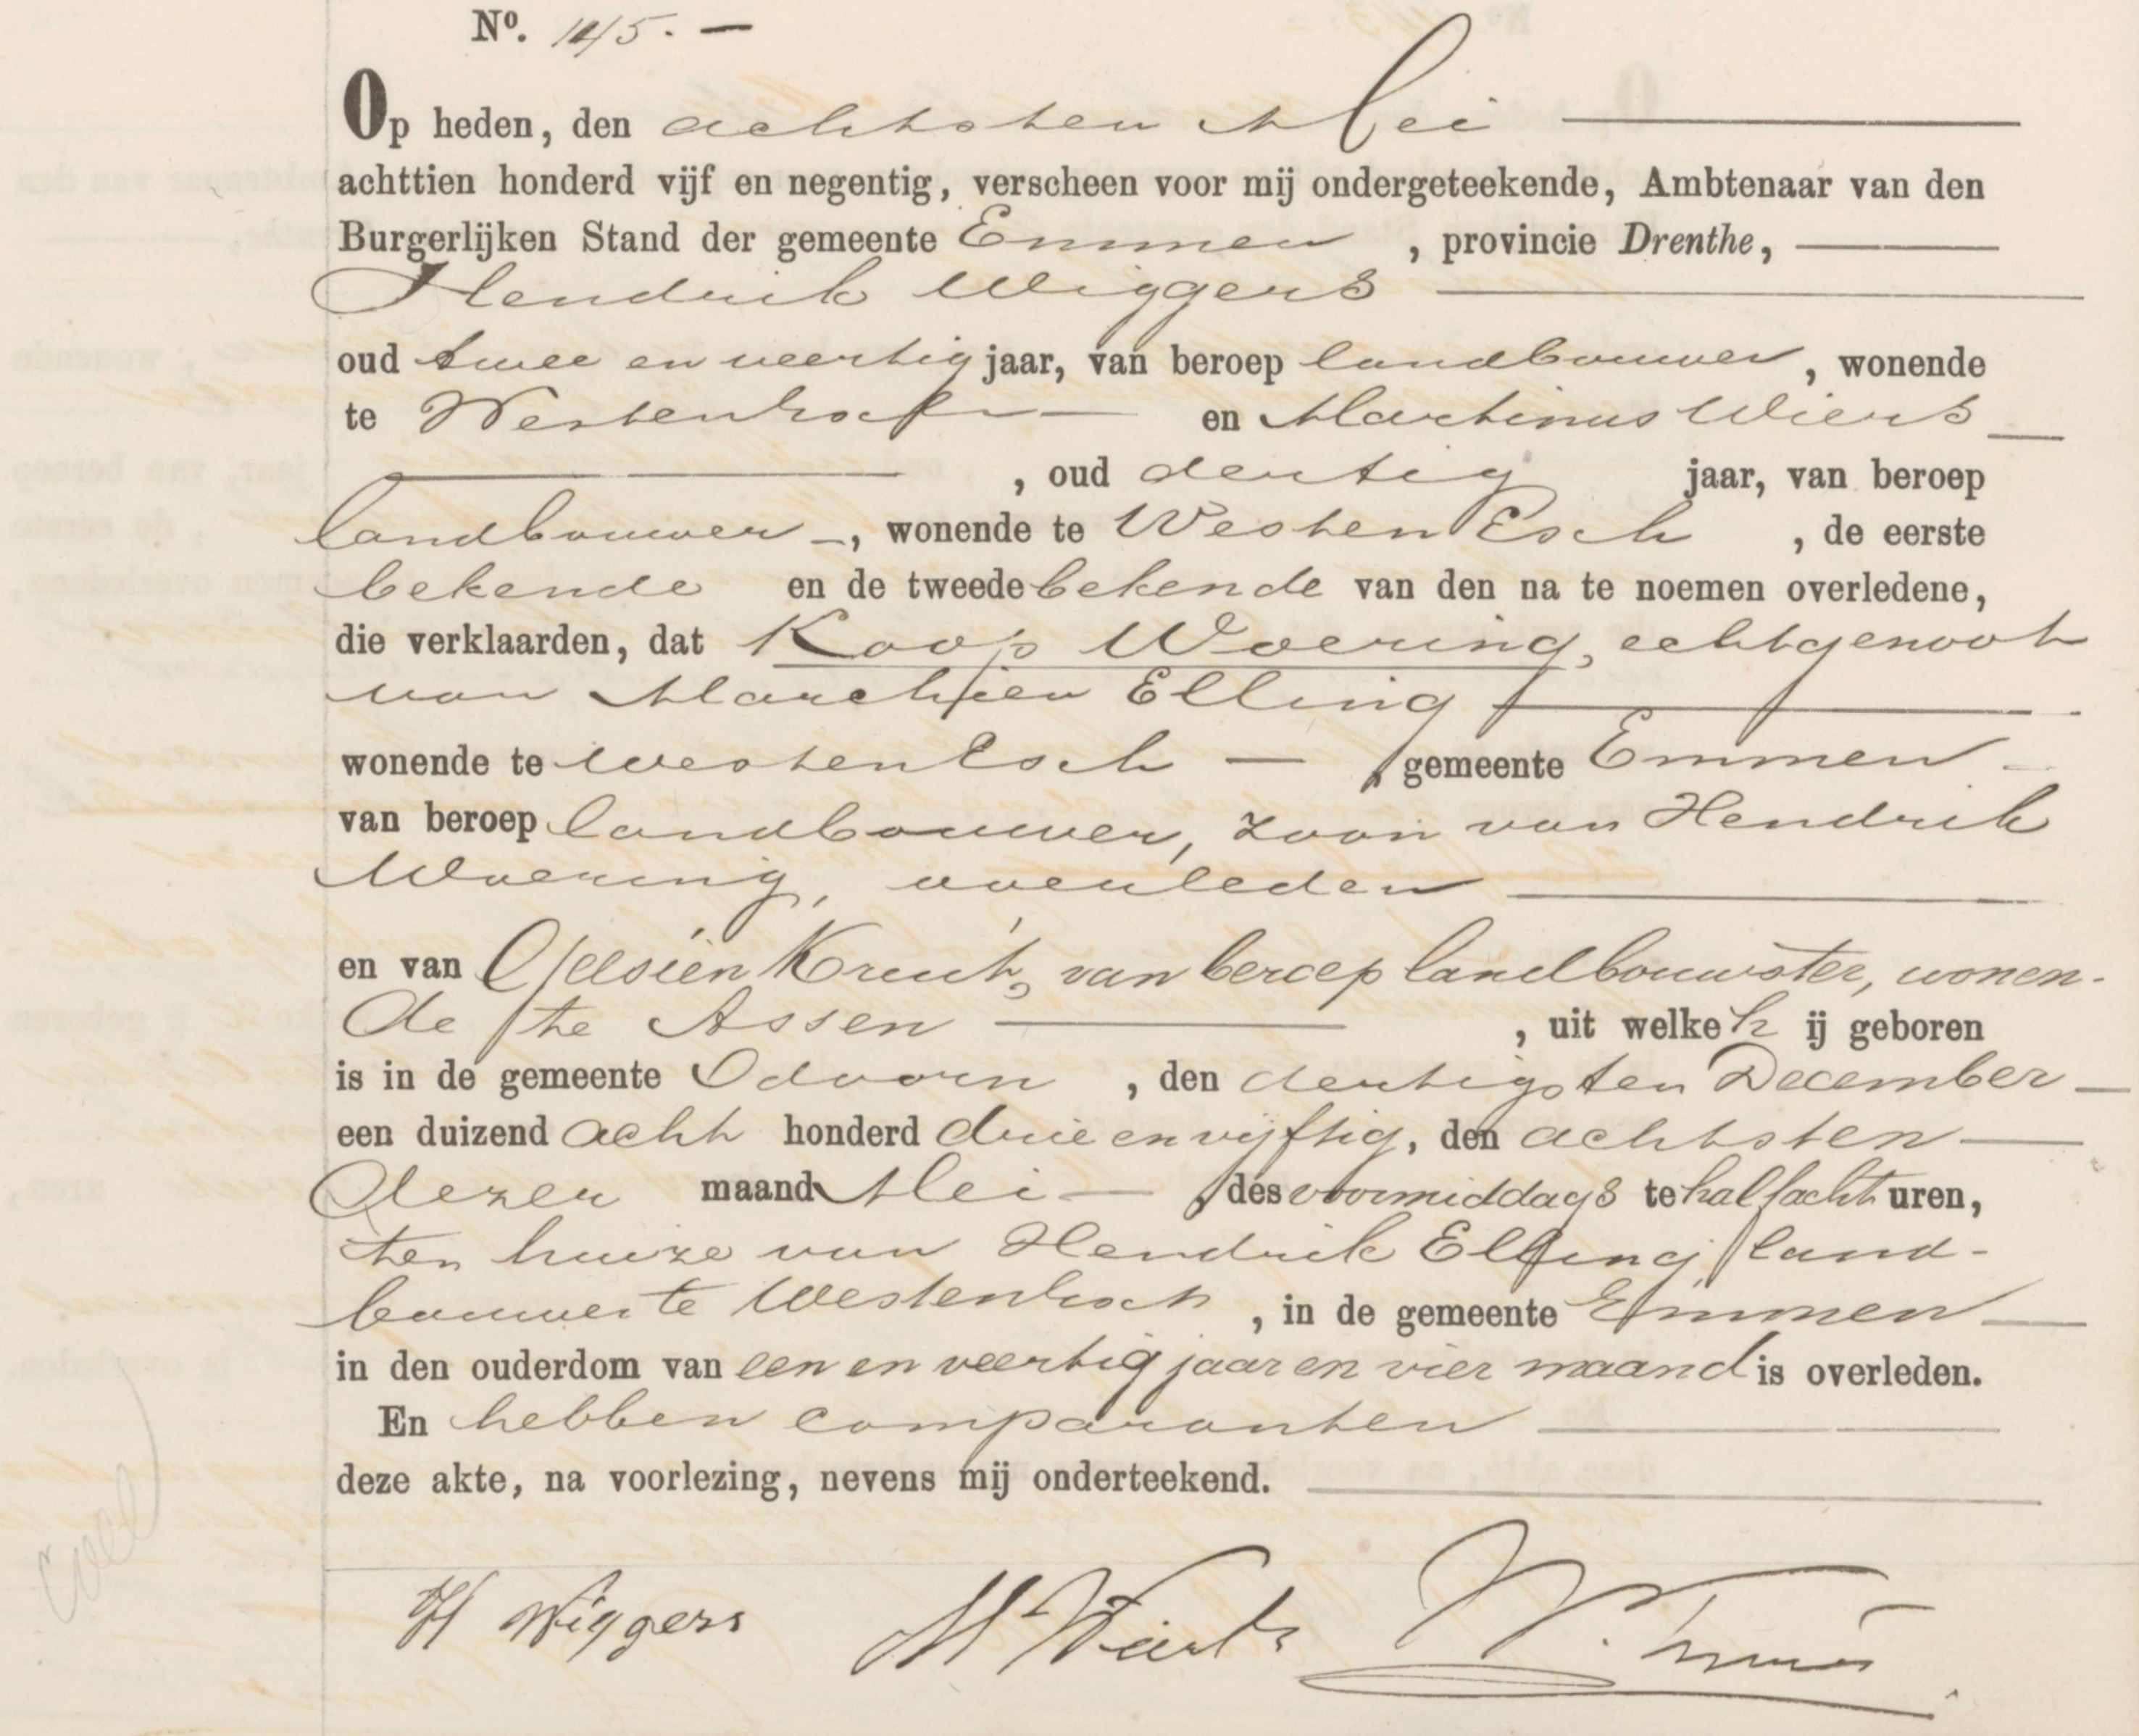 Nº. 145. —
Op heden, den achtsten Mei
achttien honderd vijf en negentig, verscheen voor mij ondergeteekende, Ambtenaar van den
Burgerlijken Stand der gemeente Emmen, provincie Drenthe,
Hendrik Wiggers
oud twee en veertig jaar, van beroep landbouwer, wonende
te Westenesch en Martinus Wiers
, oud dertig jaar, van beroep
landbouwer, wonende te WestenEsch, de eerste
bekende en de tweede bekende van den na te noemen overledene,
die verklaarden, dat Koop Woering, echtgenoot
van Marchien Elling
wonende te westenEsch, gemeente Emmen
van beroep landbouwer, zoon van Hendrik
Woering, overleden
en van Geesien Kruit, van beroep landbouwster, wonen-
de te Assen, uit welke hij geboren
is in de gemeente Odoorn, den dertigsten December
een duizend acht honderd drie en vijftig, den achtsten
dezer maand Mei, des voormiddags te half acht uren,
ten huize van Hendrik Elling land-
bouwer te Westenesch, in de gemeente Emmen
in den ouderdom van een en veertig jaar en vier maand is overleden.
En hebben comparanten
deze akte, na voorlezing, nevens mij onderteekend.
H Wiggers M Wiers